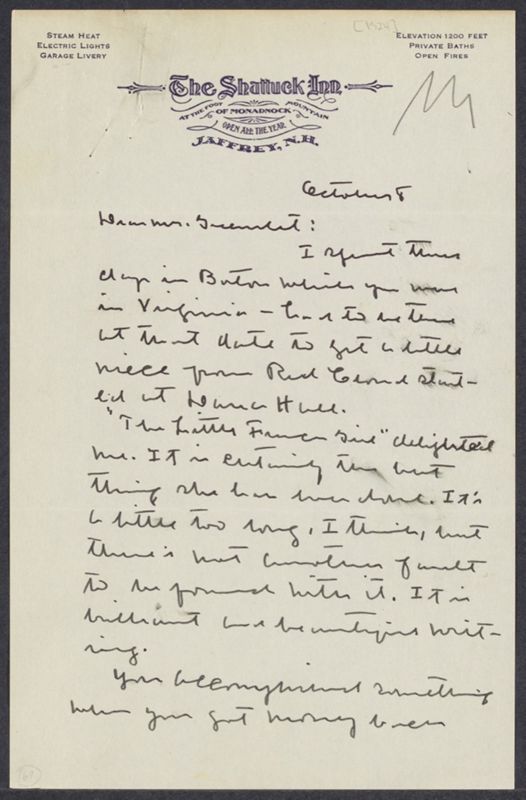 [1924]
STEAM HEAT
ELECTRIC LIGHTS
GARAGE LIVERY
ELEVATION 1200 FEET
PRIVATE BATHS
OPEN FIRES
The Shattuck Inn
AT THE FOOT OF MONADNOCK MOUNTAIN
OPEN ALL THE YEAR
JAFFREY, N.H.
October 8
Dear Mr. Greenslet:
I spent three
days in Boston while you were
in Virginia — had to be there
at that date to get a little
niece from Red Cloud start-
ed at Dana Hall.
"The Little French Girl" delighted
me. It is certainly the best
thing she has ever done. It's
a little too long, I think, but
there's not another fault
to be found with it. It is
brilliant and beautiful writ-
ing.
You accomplished something
when you got money back